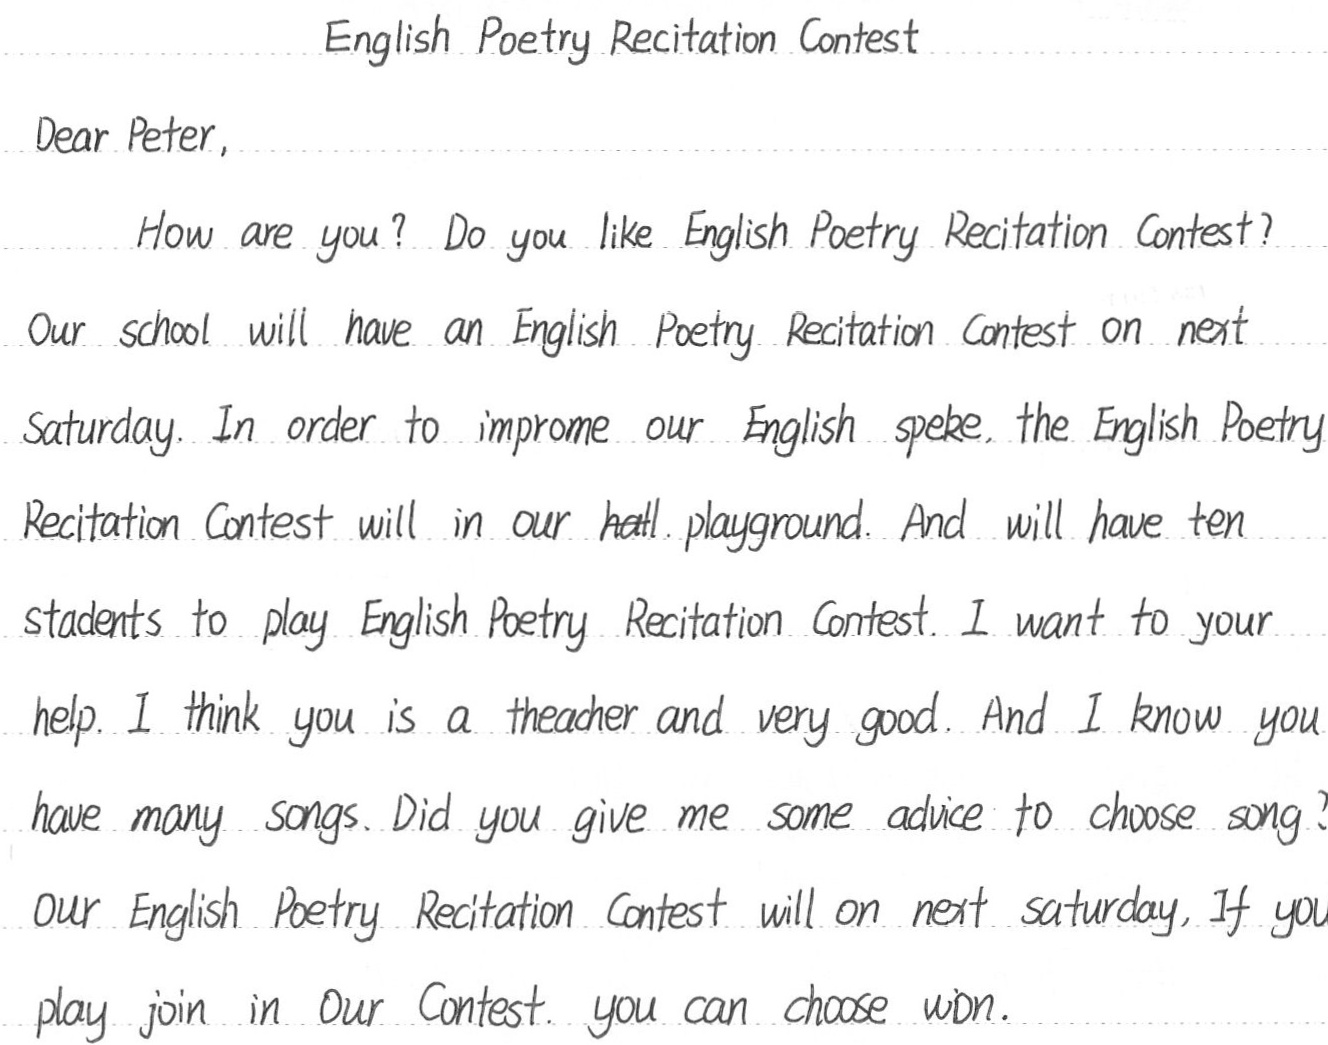 English Poetry Recitation Contest
Dear Peter,
How are you? Do you like English Poetry Recitation Contest?
Our school will have an English Poetry Recitation Contest on next
Saturday. In order to improme our English speke. the English Poetry
Recitation Contest will in our hall. playground. And will have ten
stadents to play English Poetry Recitation Contest. I want to your
help. I think you is a theacher and very good. And I know you
have many songs. Did you give me some advice to choose song?
Our English Poetry Recitation Contest will on next saturday, If you
play join in Our Contest. you can choose won.